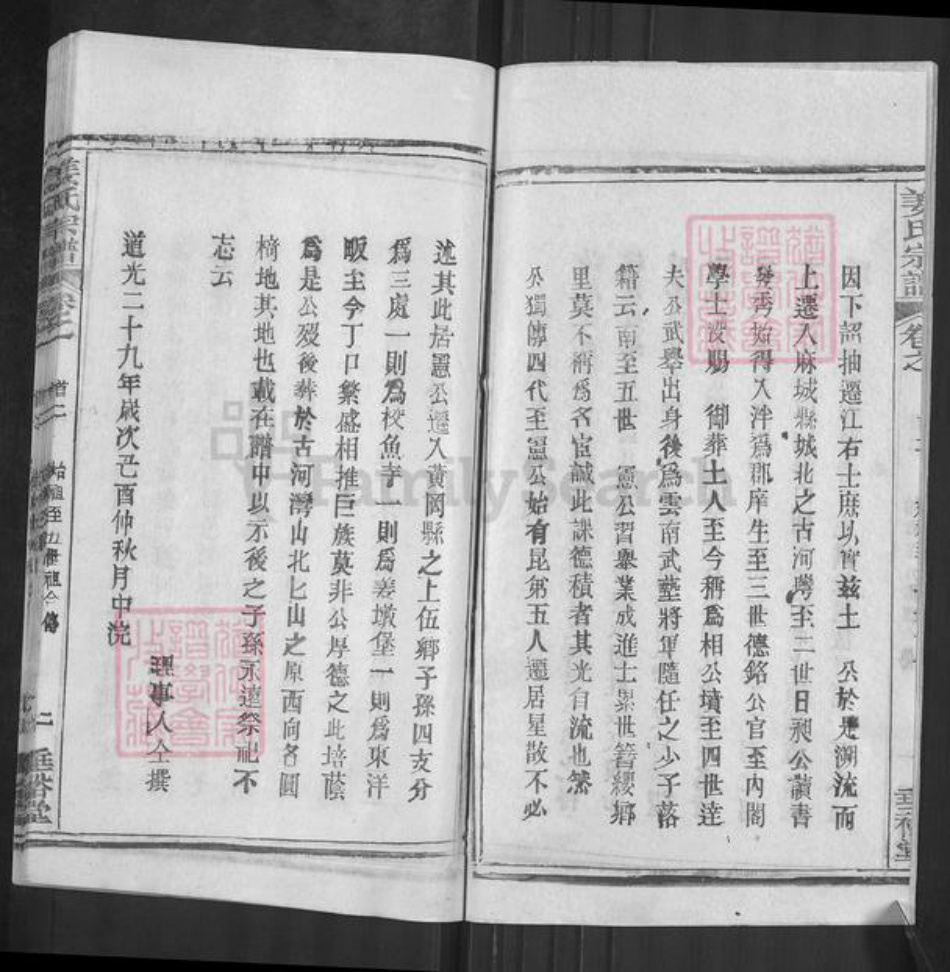 姜氏宗譜
卷之
因下詔抽遷江右士庶以實兹土 公於是溯流而
上遷入麻城縣城北之古河灣至二世日昶公讀書
發秀始得入泮爲郡庠生至三世德銘公官至內閣
學士沒賜 御葬土人至今稱爲相公墳至四世達
夫公武舉出身後爲雲南武藝將軍隨任之少子落
籍云南至五世 憲公習舉業成進士累世簪纓鄉
里莫不稱爲名宦誠此謀德積者其光自流也然
公獨傳四代至憲公始有昆弟五人遷居星散不必
述其此居憲公遷入黃岡縣之上伍鄉子孫四支分
爲三處一則爲校魚寺一則爲姜墩堡一則爲東洋
畈至今丁口繁盛相推巨族莫非公厚德之此培蔭
爲是公歿後葬於古河灣山北匕山之原西向名圓
椅地其地也載在譜中以示後之子孫永遠祭祀不
志云
道光二十九年嵗次己酉仲秋月中浣
理事人仝撰
姜氏宗譜
卷之
首二
始祖至五世祖合傳
二
垂裕堂
FamilySearch